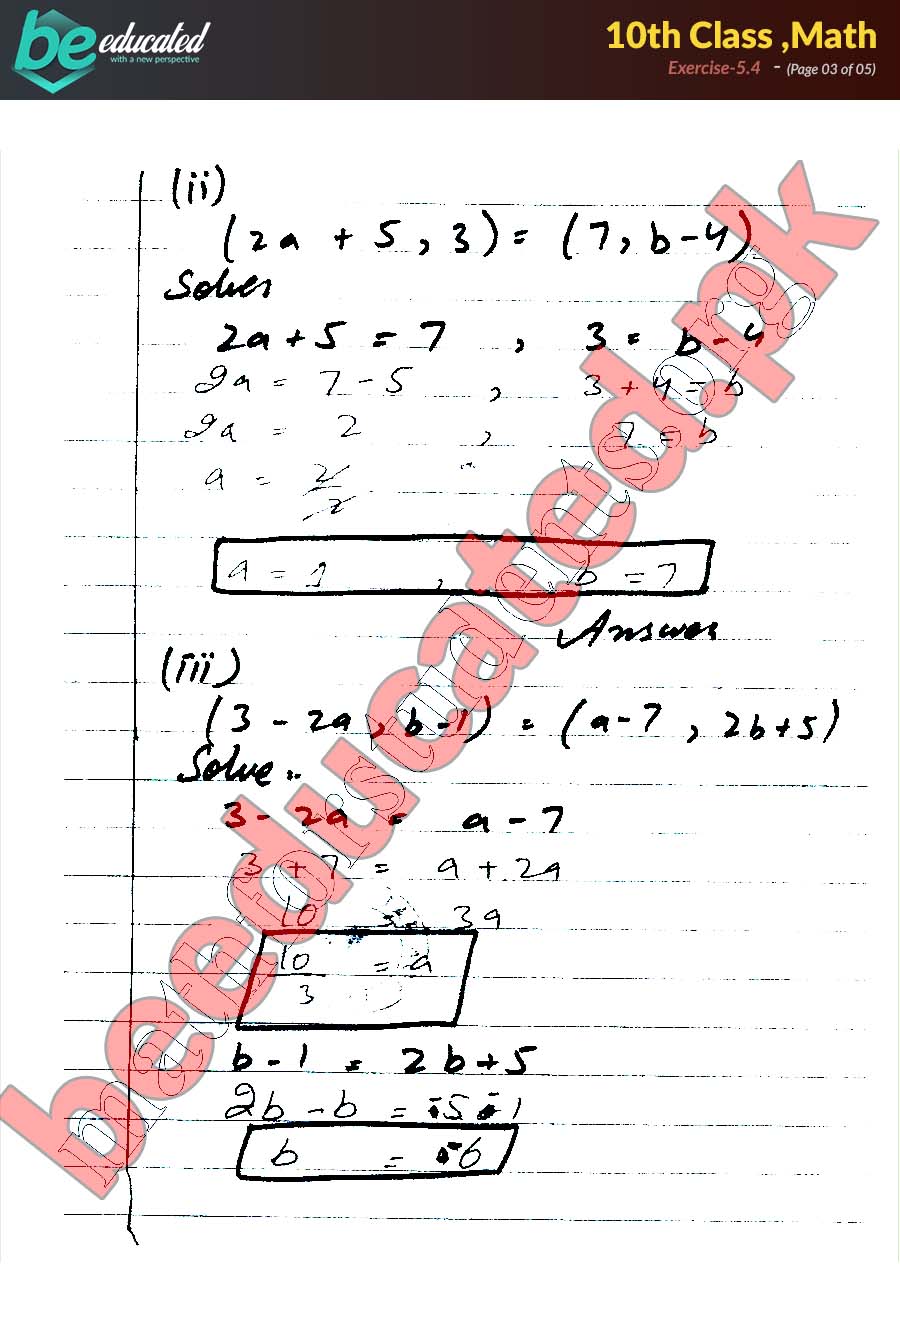 be educated
with a new perspective
10th Class ,Math
Exercise-5.4 - (Page 03 of 05)
(ii)
(2a + 5 , 3) = (7, b-4)
Solve:
2a + 5 = 7 , 3 = b - 4
2a = 7 - 5 , 3 + 4 = b
2a = 2 , 7 = b
a = 2/2
a = 1 , b = 7
Answer
(iii)
(3 - 2a, b-1) = (a-7 , 2b+5)
Solve :-
3 - 2a = a - 7
3 + 7 = a + 2a
10 = 3a
10/3 = a
b - 1 = 2b + 5
2b - b = -5 - 1
b = -6
beeducated.pk